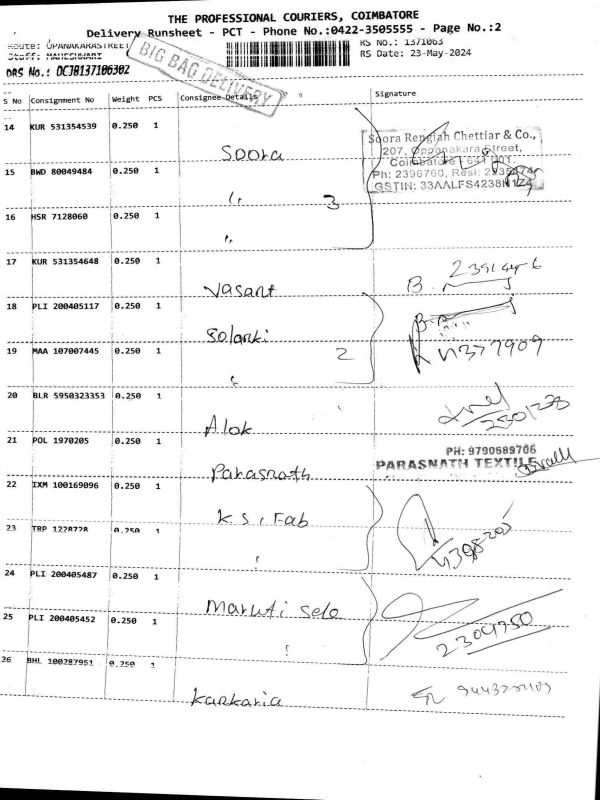 THE PROFESSIONAL COURIERS, COIMBATORE
Delivery Runsheet - PCT - Phone No.:0422-3505555 - Page No.:2
Route: OPANAKARASTREET
RS No.: 1371063
Staff: MAHESHWARI
RS Date: 23-May-2024
DRS No.: DCJB137106302
BIG BAG DELIVERY
S No Consignment No Weight PCS Consignee Details Signature
14 KUR 531354539 0.250 1 Soora
Soora Rengiah Chettiar & Co.,
207, Oppanakara Street,
Coimbatore - 641 001.
Ph: 2396760, Resi:
GSTIN: 33AALFS4238N1Z4
15 BWD 80049484 0.250 1 " 3
16 HSR 7128060 0.250 1 "
17 KUR 531354648 0.250 1 Vasant B. 2391446
18 PLI 200405117 0.250 1 Solanki
19 MAA 107007445 0.250 1 " 2
20 BLR 5950323353 0.250 1 Alok
21 POL 1970205 0.250 1 Parasnath
PH: 9790689706
PARASNATH TEXTILE
22 IXM 100169096 0.250 1 K.S. Fab
23 TRP 1228728 0.250 1 "
24 PLI 200405487 0.250 1 Maruti Sele
25 PLI 200405452 0.250 1 " 2304750
26 BHL 100287951 0.250 1 Kankaria